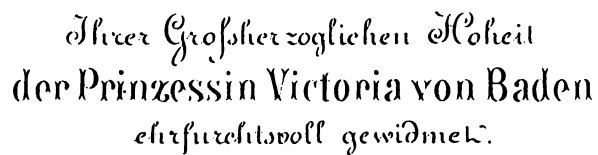 Ihrer Großherzoglichen Hoheit
der Prinzessin Victoria von Baden
ehrfurchtsvoll gewidmet.